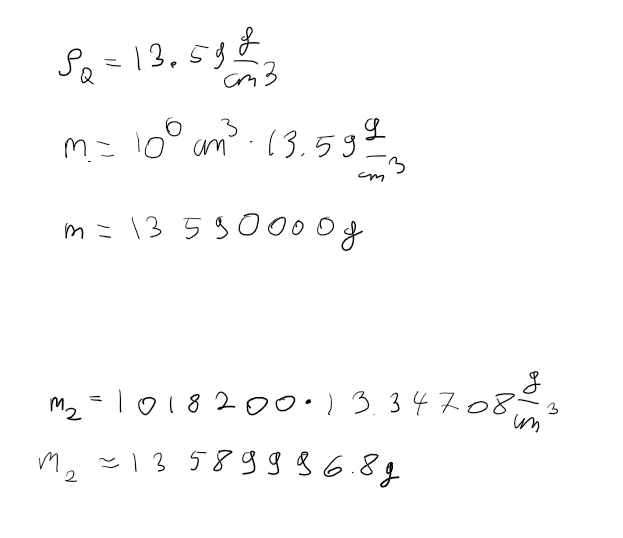 ρ_Q = 13.59 g/cm3
m = 10^6 cm^3 · 13.59 g/cm^3
m = 13 590000g
m_2 = 1018200 · 13.34708 g/cm^3
m_2 ≈ 13 589996.8g